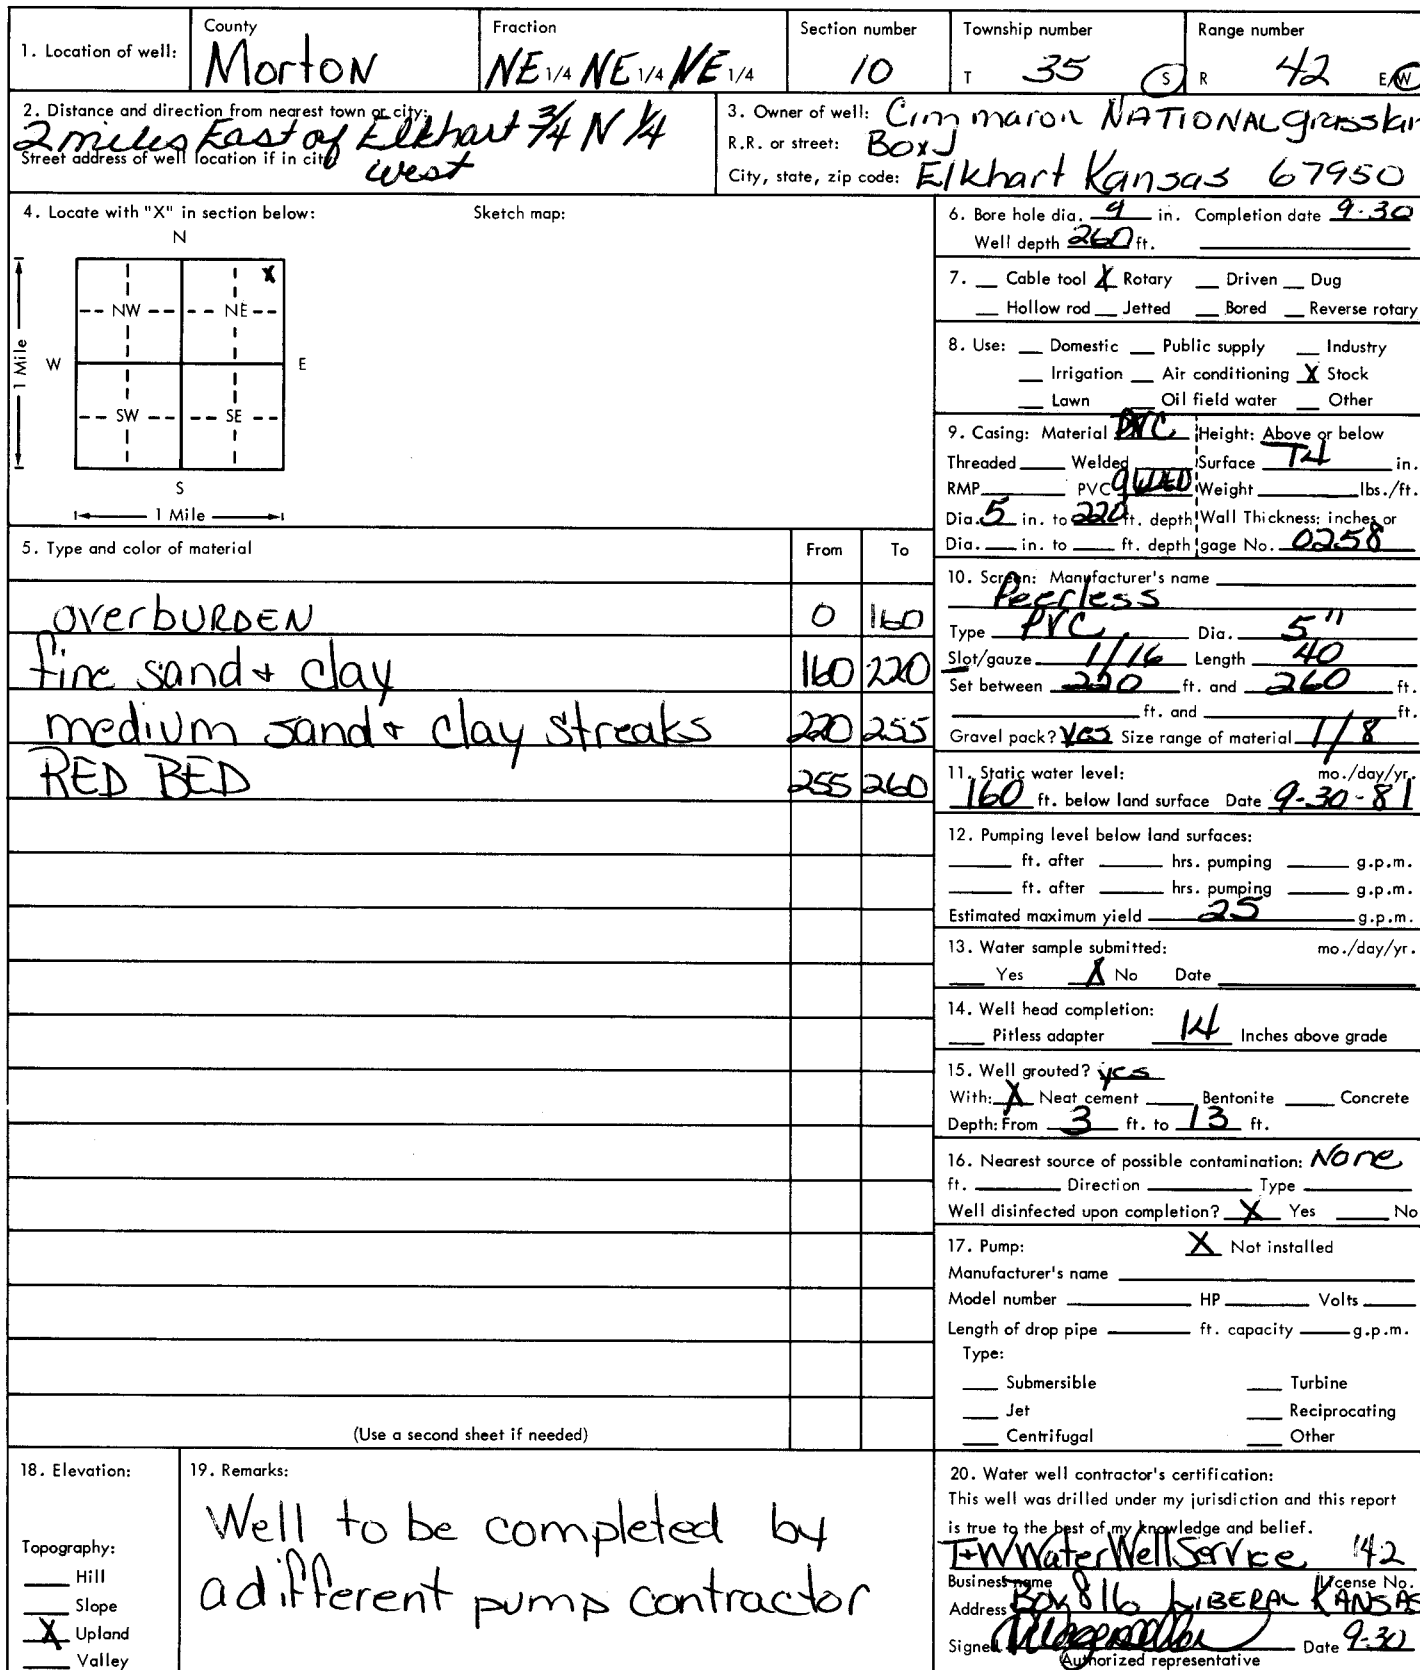 1. Location of well: County Morton Fraction NE 1/4 NE 1/4 NE 1/4 Section number 10 Township number T 35 S Range number R 42 E/W
2. Distance and direction from nearest town or city:
2 miles East of Elkhart 3/4 N 1/4
Street address of well location if in city:
west
3. Owner of well: Cimmaron NATIONAL grasslan
R.R. or street: Box J
City, state, zip code: Elkhart Kansas 67950
4. Locate with "X" in section below: Sketch map:
N
X
NW NE
W E
1 Mile
SW SE
S
1 Mile
5. Type and color of material From To
overBURDEN 0 160
fine sand + clay 160 220
medium sand + clay streaks 220 255
RED BED 255 260
(Use a second sheet if needed)
6. Bore hole dia. 9 in. Completion date 9-30
Well depth 260 ft.
7. Cable tool X Rotary Driven Dug
Hollow rod Jetted Bored Reverse rotary
8. Use: Domestic Public supply Industry
Irrigation Air conditioning X Stock
Lawn Oil field water Other
9. Casing: Material PVC Height: Above or below
Threaded Welded Surface 14 in.
RMP PVC GLUED Weight lbs./ft.
Dia. 5 in. to 220 ft. depth Wall Thickness: inches or
Dia. in. to ft. depth gage No. 0258
10. Screen: Manufacturer's name
Peerless
Type PVC Dia. 5"
Slot/gauze 1/16 Length 40
Set between 220 ft. and 260 ft.
ft. and ft.
Gravel pack? Yes Size range of material 1/8
11. Static water level: mo./day/yr.
160 ft. below land surface Date 9-30-81
12. Pumping level below land surfaces:
ft. after hrs. pumping g.p.m.
ft. after hrs. pumping g.p.m.
Estimated maximum yield 25 g.p.m.
13. Water sample submitted: mo./day/yr.
Yes X No Date
14. Well head completion:
Pitless adapter 14 Inches above grade
15. Well grouted? yes
With: X Neat cement Bentonite Concrete
Depth: From 3 ft. to 13 ft.
16. Nearest source of possible contamination: None
ft. Direction Type
Well disinfected upon completion? X Yes No
17. Pump: X Not installed
Manufacturer's name
Model number HP Volts
Length of drop pipe ft. capacity g.p.m.
Type:
Submersible Turbine
Jet Reciprocating
Centrifugal Other
18. Elevation:
Topography:
Hill
Slope
X Upland
Valley
19. Remarks:
Well to be completed by
a different pump contractor
20. Water well contractor's certification:
This well was drilled under my jurisdiction and this report
is true to the best of my knowledge and belief.
T+W Water Well Service 142
Business name License No.
Address Box 816 LIBERAL KANSAS
Signed Date 9-30
Authorized representative